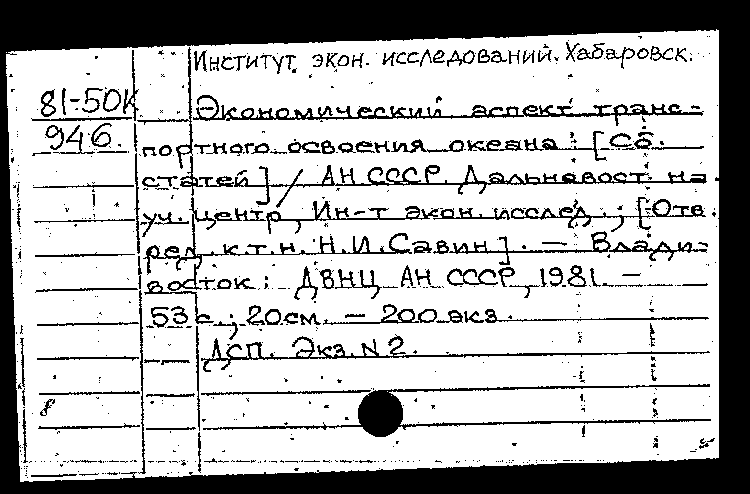 Институт экон. исследований. Хабаровск.
81-50К
946.
Экономический аспект транс-
портного освоения океана : [Сб.
статей] / АН СССР. Дальневост. на-
уч. центр, Ин-т экон. исслед. ; [Отв.
ред. к.т.н. Н.И. Савин]. — Влади-
восток : ДВНЦ АН СССР, 1981. —
53 с. ; 20см. — 200 экз.
ДСП. Экз. N 2.